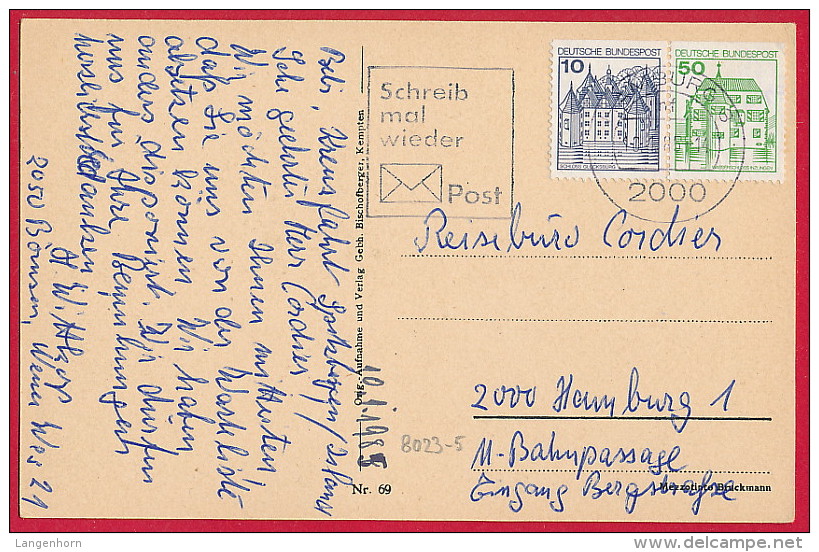 Betr.: Kreuzfahrt Spitzbergen/Island
Sehr geehrter Herr Cordier!
Wir möchten Ihnen mitteilen,
daß Sie uns von der Warteliste
absetzen können. Wir haben
anders disponiert. Wir danken
uns für Ihre Bemühungen
herzlichst
H. Wittzeps
2050 Börnsen, Neuer Weg 21
10.1.1985
Orig.-Aufnahme und Verlag Gebh. Bischofberger, Kempten
Schreib
mal
wieder
Post
DEUTSCHE BUNDESPOST
10
SCHLOSS GLÜCKSBURG
DEUTSCHE BUNDESPOST
50
WASSERSCHLOSS INZLINGEN
2000
Reisebüro Cordier
2000 Hamburg 1
U-Bahnpassage
Eingang Bergstraße
8023-5
Nr. 69
Mezzotinto Bruckmann
Langenhorn
delcampe.net